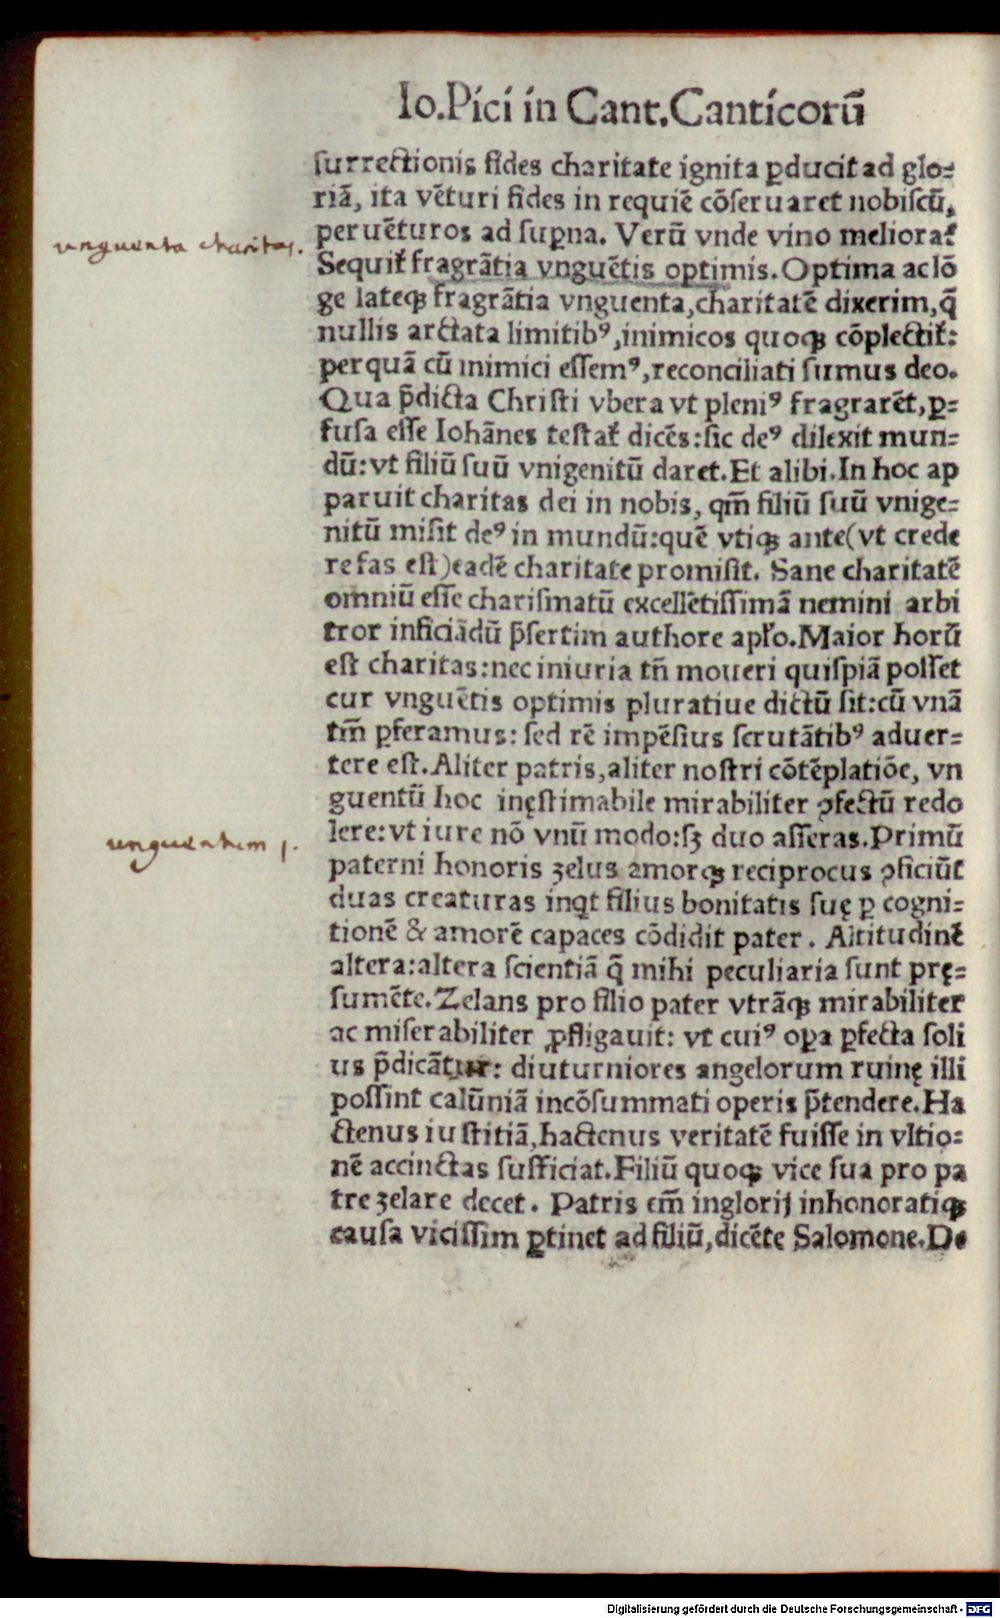 Io.Pici in Cant.Canticorū
surrectionis fides charitate ignita ꝑducit ad glo⸗
riā, ita vēturi fides in requiē cōseruaret nobiscū,
peruēturos ad suꝑna. Verū vnde vino melioraꝉ
unguenta charitas.
Sequiꝉ fragrātia vnguētis optimis. Optima ac lō
ge lateqꝫ fragrātia vnguenta, charitatē dixerim, q̄
nullis arctata limitibꝰ, inimicos quoqꝫ cōplectiꝉ:
per quā cū inimici essemꝰ, reconciliati sumus deo.
Qua p̄dicta Christi vbera vt pleniꝰ fragrarēt, ꝑ⸗
fusa esse Iohānes testaꝉ dicēs: sic deꝰ dilexit mun⸗
dū: vt filiū suū vnigenitū daret. Et alibi. In hoc ap
paruit charitas dei in nobis, qm̄ filiū suū vnige⸗
nitū misit deꝰ in mundū: quē vtiqꝫ ante (vt crede
re fas est) eadē charitate promisit. Sane charitatē
omniū esse charismatū excellētissimā nemini arbi
tror inficiādū p̄sertim authore apꝉo. Maior horū
est charitas: nec iniuria tn̄ moueri quispiā posset
cur vnguētis optimis pluratiue dictū sit: cū vnā
tm̄ ꝑferamus: sed rē impēsius scrutātibꝰ aduer⸗
tere est. Aliter patris, aliter nostri cōtēplatiōe, vn
guentū hoc inęstimabile mirabiliter ꝓfectū redo
lere: vt iure nō vnū modo: sꝫ duo asseras. Primū
unguentum 1.
paterni honoris zelus amorqꝫ reciprocus ꝓficiūt
duas creaturas inqt filius bonitatis suę ꝑ cogni⸗
tionē & amorē capaces cōdidit pater. Altitudinē
altera: altera scientiā q̄ mihi peculiaria sunt prę⸗
sumēte. Zelans pro filio pater vtrāqꝫ mirabiliter
ac miserabiliter ꝓfligauit: vt cuiꝰ oꝑa ꝑfecta soli
us p̄dicātur: diuturniores angelorum ruinę illi
possint calūniā incōsummati operis p̄tendere. Ha
ctenus iustitiā, hactenus veritatē fuisse in vltio⸗
nē accinctas sufficiat. Filiū quoqꝫ vice sua pro pa
tre zelare decet. Patris em̄ inglorij inhonoratiqꝫ
causa vicissim ꝑtinet ad filiū, dicēte Salomone. De
Digitalisierung gefördert durch die Deutsche Forschungsgemeinschaft - DFG